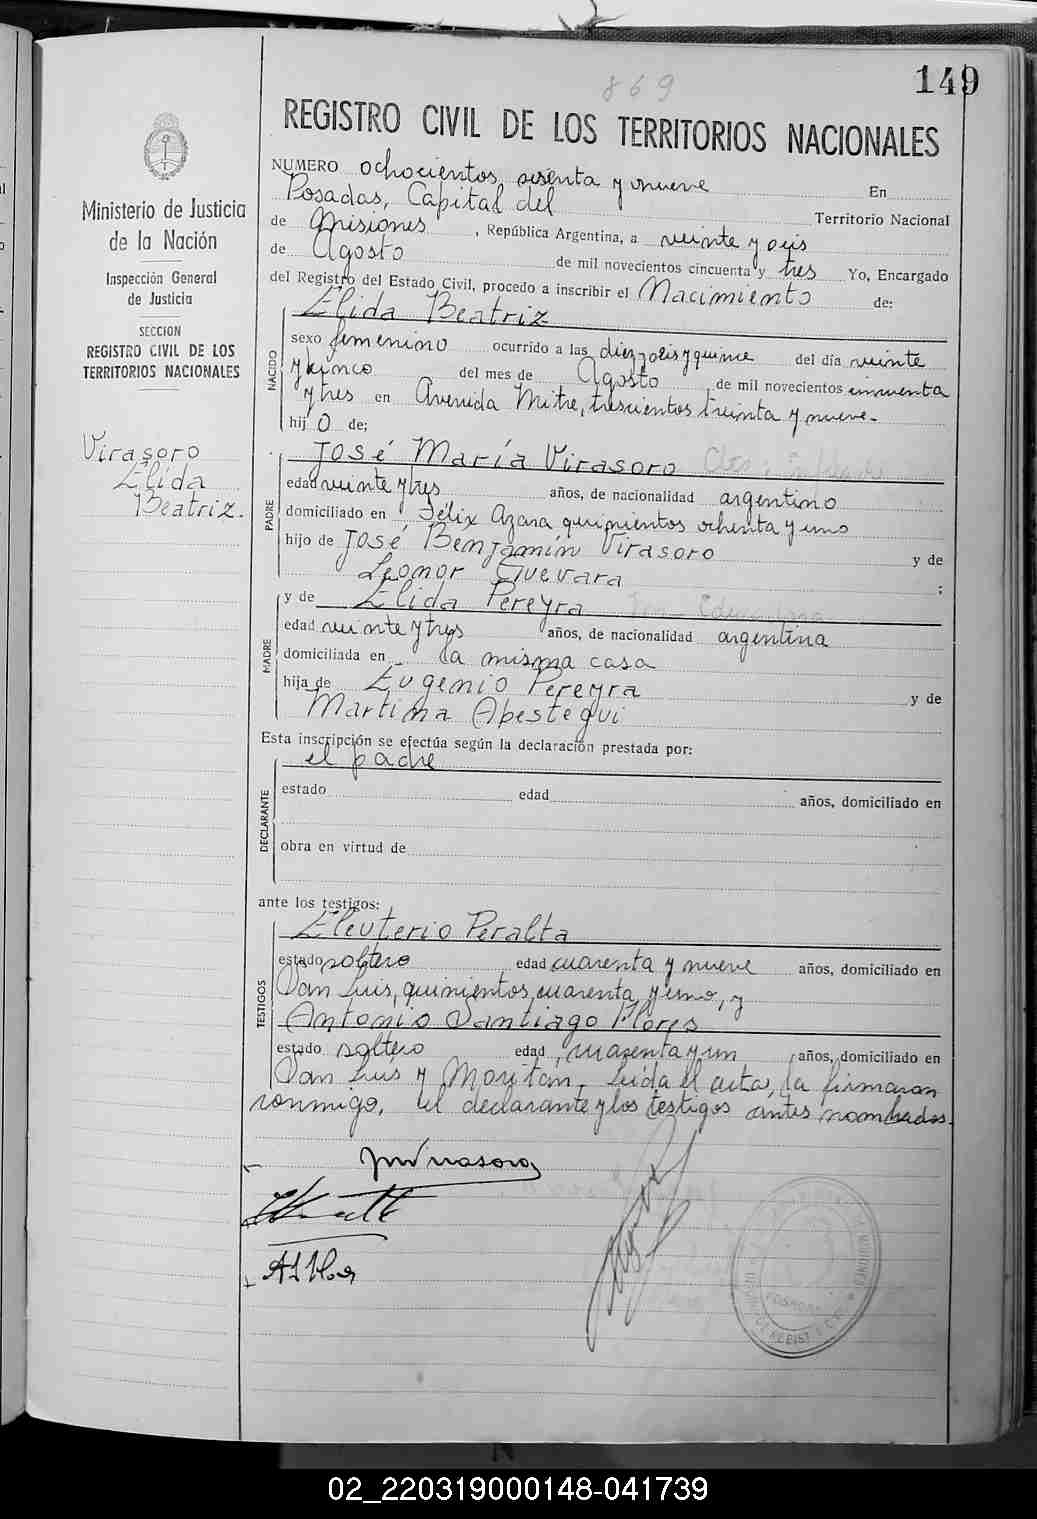 149
869
REGISTRO CIVIL DE LOS TERRITORIOS NACIONALES
NUMERO ochocientos sesenta y nueve En
Posadas, Capital del Territorio Nacional
de Misiones, República Argentina, a veinte y seis
de Agosto de mil novecientos cincuenta y tres Yo, Encargado
del Registro del Estado Civil, procedo a inscribir el Nacimiento de:
Elida Beatriz
NACIDO
sexo femenino ocurrido a las diez y seis y quince del día veinte
y cinco del mes de Agosto de mil novecientos cincuenta
y tres en Avenida Mitre, trescientos treinta y nueve.-
hij O de;
José María Virasoro
PADRE
edad veinte y tres años, de nacionalidad argentino
domiciliado en Félix Azara quinientos ochenta y uno
hijo de José Benjamín Virasoro y de
Leonor Guevara ;
y de Elida Pereyra
MADRE
edad veinte y tres años, de nacionalidad argentina
domiciliada en la misma casa
hija de Eugenio Pereyra y de
Martina Apestegui
Esta inscripción se efectúa según la declaración prestada por:
el padre
DECLARANTE
estado edad años, domiciliado en
obra en virtud de
ante los testigos:
Eleuterio Peralta
TESTIGOS
estado soltero edad cuarenta y nueve años, domiciliado en
San Luis, quinientos cuarenta y uno, y
Antonio Santiago Flores
estado soltero edad cuarenta y un años, domiciliado en
San Luis y Moritán.- Leída el acta, la firmaron
conmigo, el declarante y los testigos antes nombrados.
Ministerio de Justicia
de la Nación
Inspección General
de Justicia
SECCION
REGISTRO CIVIL DE LOS
TERRITORIOS NACIONALES
Virasoro
Elida
Beatriz.
JMVirasoro
POSADAS
MISIONES
02_220319000148-041739